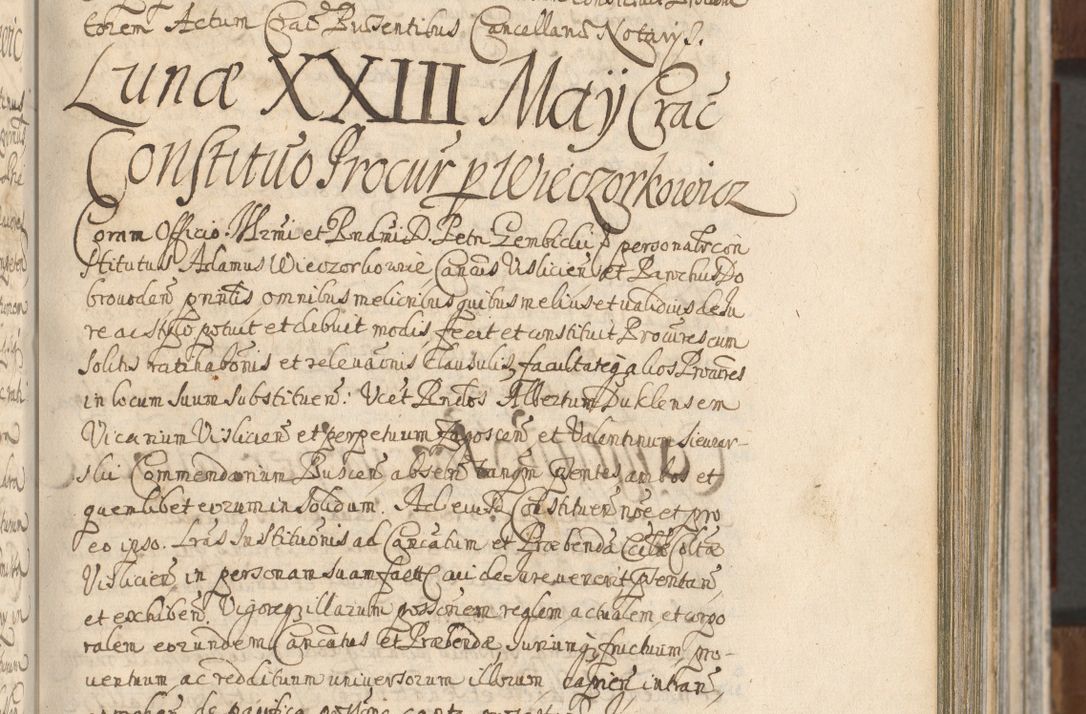 torem Actum Crac̃ Pr̃sentibus Cancellariæ Notarijs.
Lunæ XXIII Maij Crac̃
Constituo Procur̃ p Wieczorkowicz
Coram Officio Illr̃mi et Rndmi D. Petri Gembicki p personalr̃ con
stitutus Adamus Wieczorkowic Canc̃us Vislicień et Parochus Do
browoden̄ pñntis omnibus melioribus quibus melius et validius de Ju
re ac stylo potuit et debuit modis fecit et constituit Procur̃es cum
solitis ratihab̃onis et relevac̃onis clausulis, facultateq̃ alios Procur̃es
in locum suum substituen̄: Vcet Rndos Albertum Duklensem
Vicarium Vislicień et perpetuum Zagoscen̄ et Valentinum Siewar-
ski Commendarium Buscen̄ absen̄ tanq̃m p̃sentes, ambos et
quemlibet eorum in solidum. Ad eiusd̃ Constituen̄ noẽ et pro
eo ipso. Lr̃as Institũonis ad Canc̃atum et Præbendã Eccl̃æ Coll̃tæ
Vislicień in personam suam fact̃ cui de Jure venerit p̃sentan̄,
et exhiben̄. Vigoreq̃ illarum poss̃onem reg̃lem actualem et corpo
ralem eorundem Canc̃atus et Præbendæ, Juriumq̃, fructuum, pro-
ventuum ac reddituum universorum illorum capien̄ intran̄,